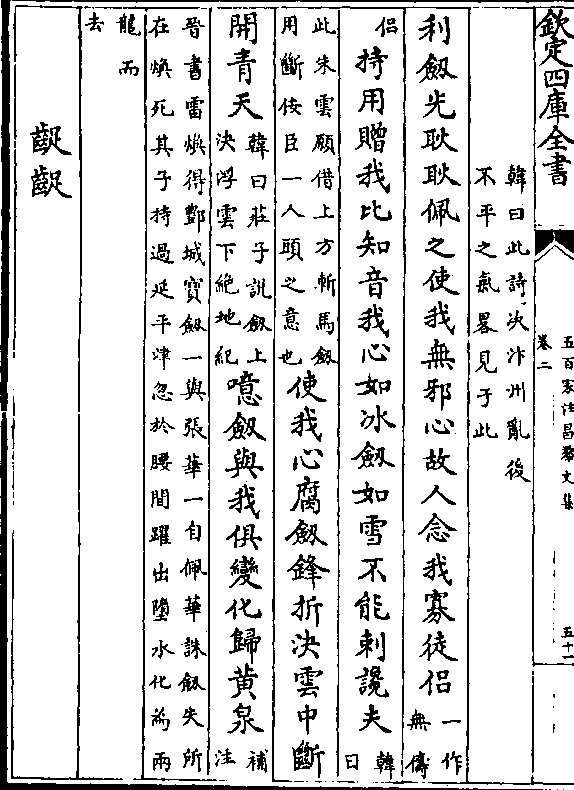 欽定四庫全書
五百家注昌黎文集
卷二
五十一
韓曰此詩決汴州亂後
不平之氣畧見于此
利劔光耿耿佩之使我無邪心故人念我寡徒侣一作無儔
侣持用贈我比知音我心如冰劔如雪不能刺讒夫韓曰
此朱雲願借上方斬馬劔用斷佞臣一人頭之意也使我心腐劔鋒折決雲中斷
開青天韓曰莊子說劔上決浮雲下絶地紀噫劔與我俱變化歸黄泉補注
晉書雷煥得酆城寶劔一與張華一自佩華誅劔失所
在煥死其子持過延平津忽於腰間躍出墮水化為兩
龍而
去
齪齪